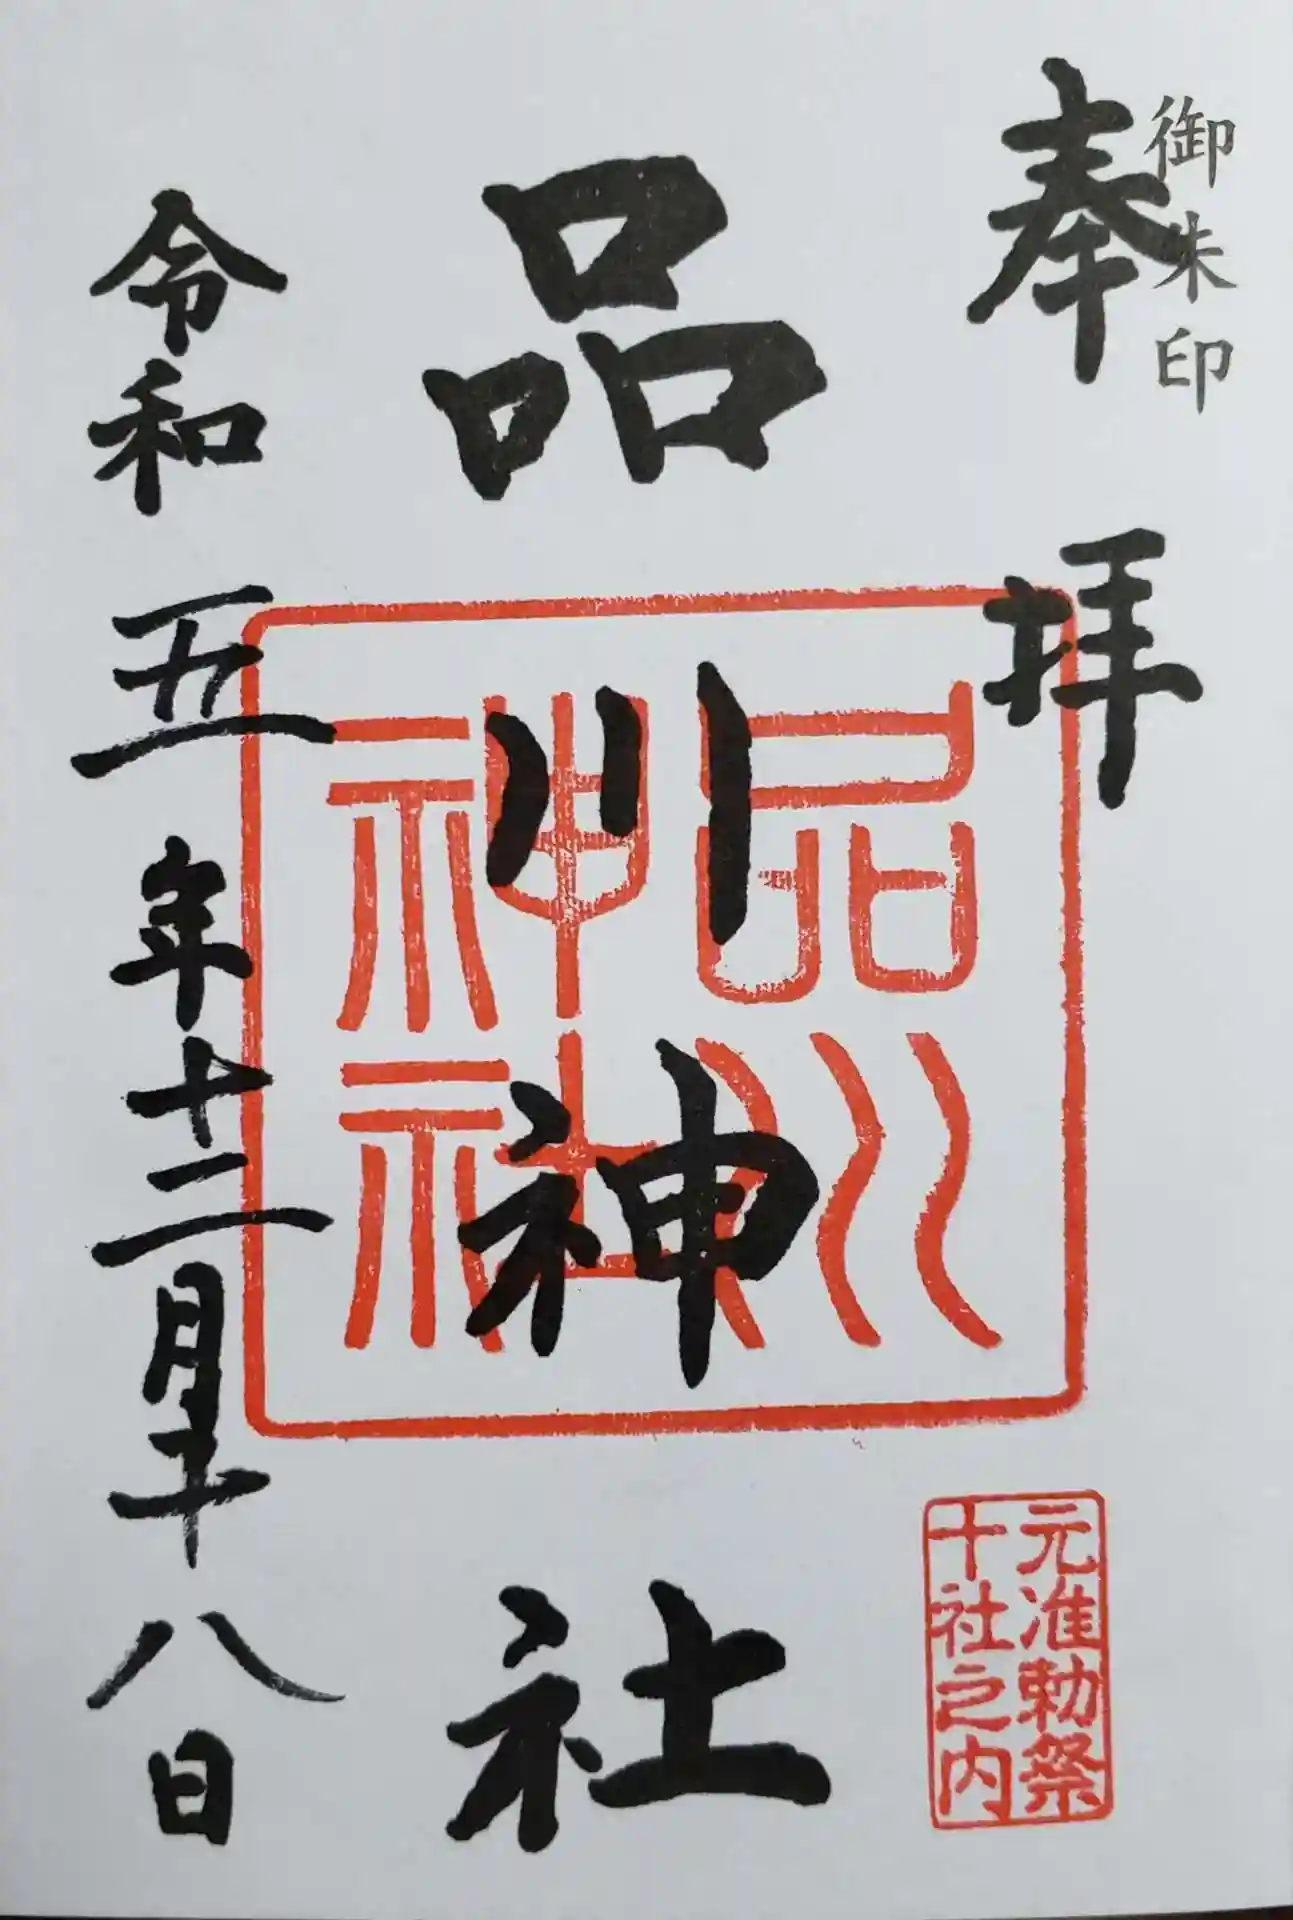 御朱印
奉拝
品川神社
品川
神社
元准勅祭
十社之内
令和五年十二月十八日